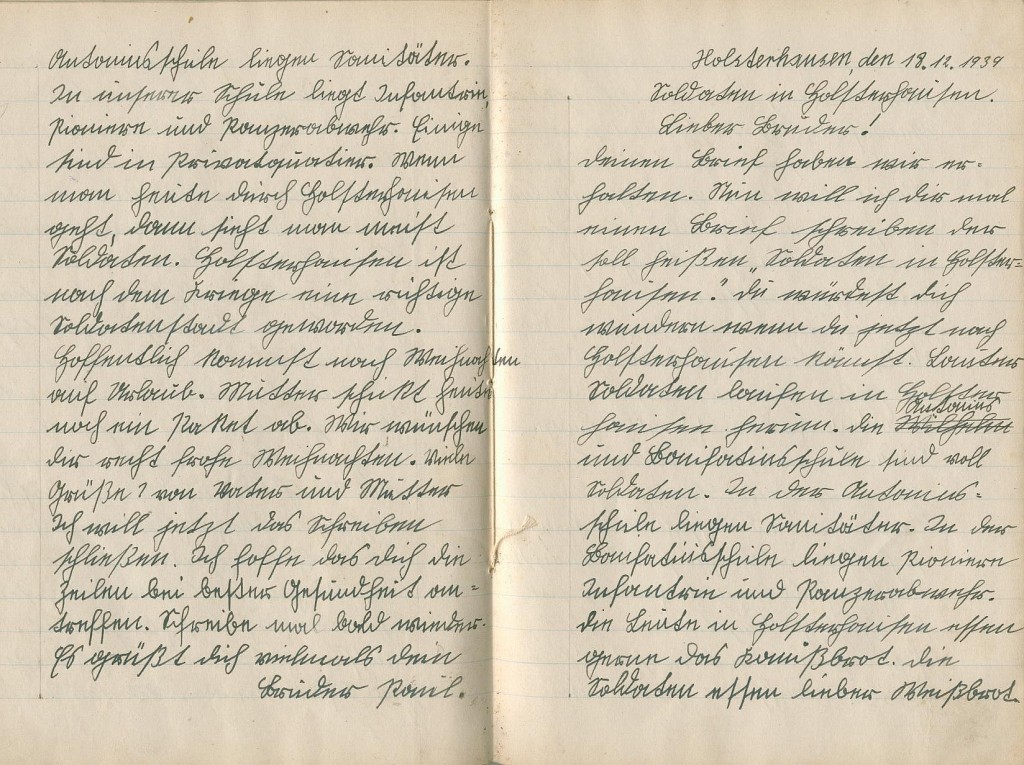 Antoniusschule liegen Sanitäter.
In unserer Schule liegt Infantrie,
Pioniere und Panzerabwehr. Einige
sind in Privatquatier. Wenn
man heute durch Holsterhausen
geht, dann sieht man meist
Soldaten. Holsterhausen ist
nach dem Kriege eine richtige
Soldatenstadt geworden.
Hoffentlich kommst nach Weihnachten
auf Urlaub. Mutter schikt heute
noch ein Paket ab. Wir wünschen
dir recht frohe Weihnachten. Viele
Grüße? von Vater und Mutter
Ich will jetzt das Schreiben
schließen. Ich hoffe das dich die
Zeilen bei bester Gesundheit an=
treffen. Schreibe mal bald wieder.
Es grüßt dich vielmals dein
Bruder Paul.
Holsterhausen, den 18.12.1939
Soldaten in Holsterhausen.
Lieber Bruder!
Deinen Brief haben wir er=
halten. Nun will ich dir mal
einen Brief schreiben der
soll heißen „Soldaten in Holster=
hausen." Du würdest dich
wundern wenn du jetzt nach
Holsterhausen kömst. Lauter
Soldaten laufen in Holster
hausen herum. Die Antonius
Wilhelm
und Bonifatiusschule sind voll
Soldaten. In der Antonius=
schule liegen Sanitäter. In der
Bonifatiusschule liegen Pioniere
Infantrie und Panzerabwehr.
Die Leute in Holsterhausen essen
gerne das Komißbrot. Die
Soldaten essen lieber Weißbrot.